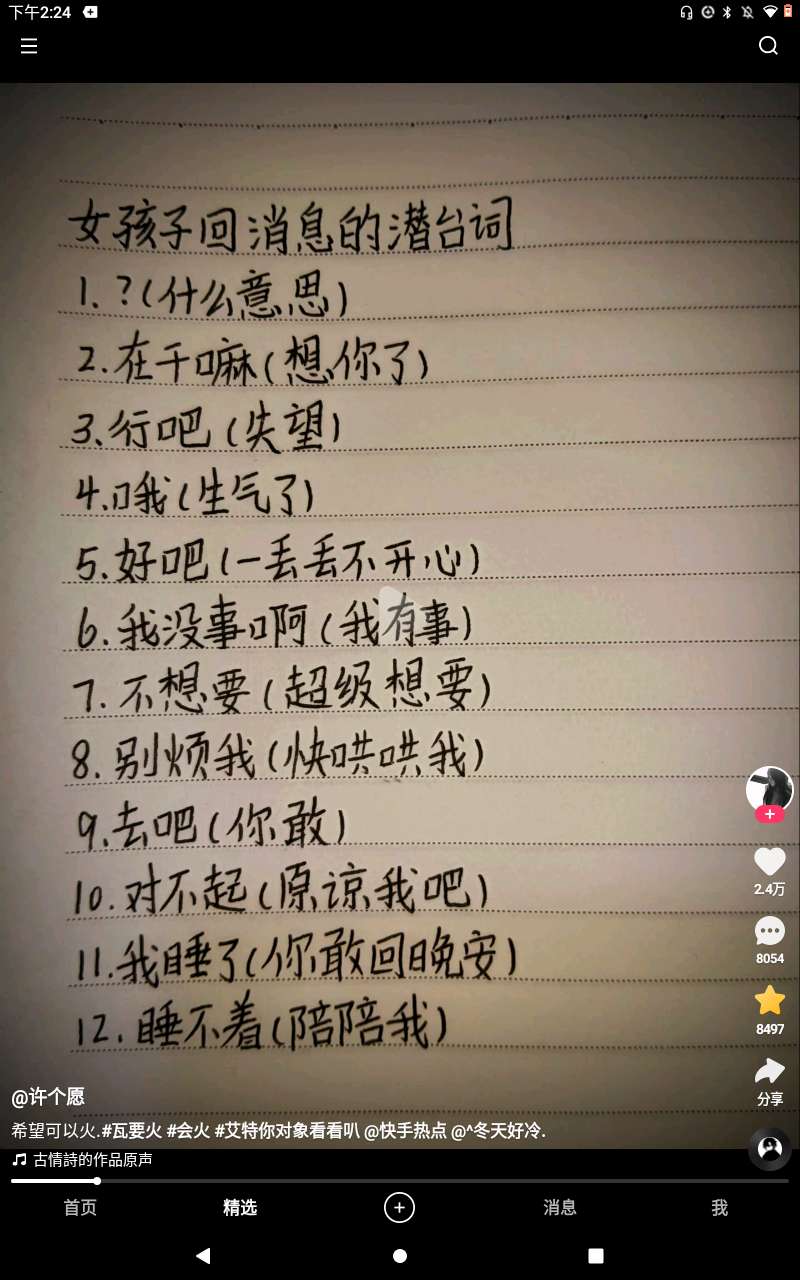 下午2:24
女孩子回消息的潜台词
1、?(什么意思)
2.在干嘛(想你了)
3、行吧(失望)
4.哦(生气了)
5.好吧(一丢丢不开心)
6.我没事啊(我有事)
7.不想要(超级想要)
8.别烦我(快哄哄我)
9.去吧(你敢)
10.对不起(原谅我吧)
11.我睡了(你敢回晚安)
12.睡不着(陪陪我)
2.4万
8054
8497
分享
@许个愿
希望可以火.#瓦要火 #会火 #艾特你对象看看叭 @快手热点 @^冬天好冷.
古情詩的作品原声
首页 精选 消息 我